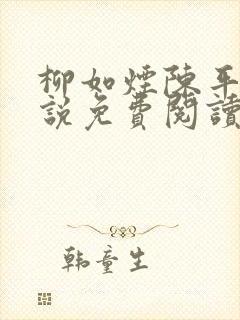 柳如煙陳平
說免費閱讀
韩童生